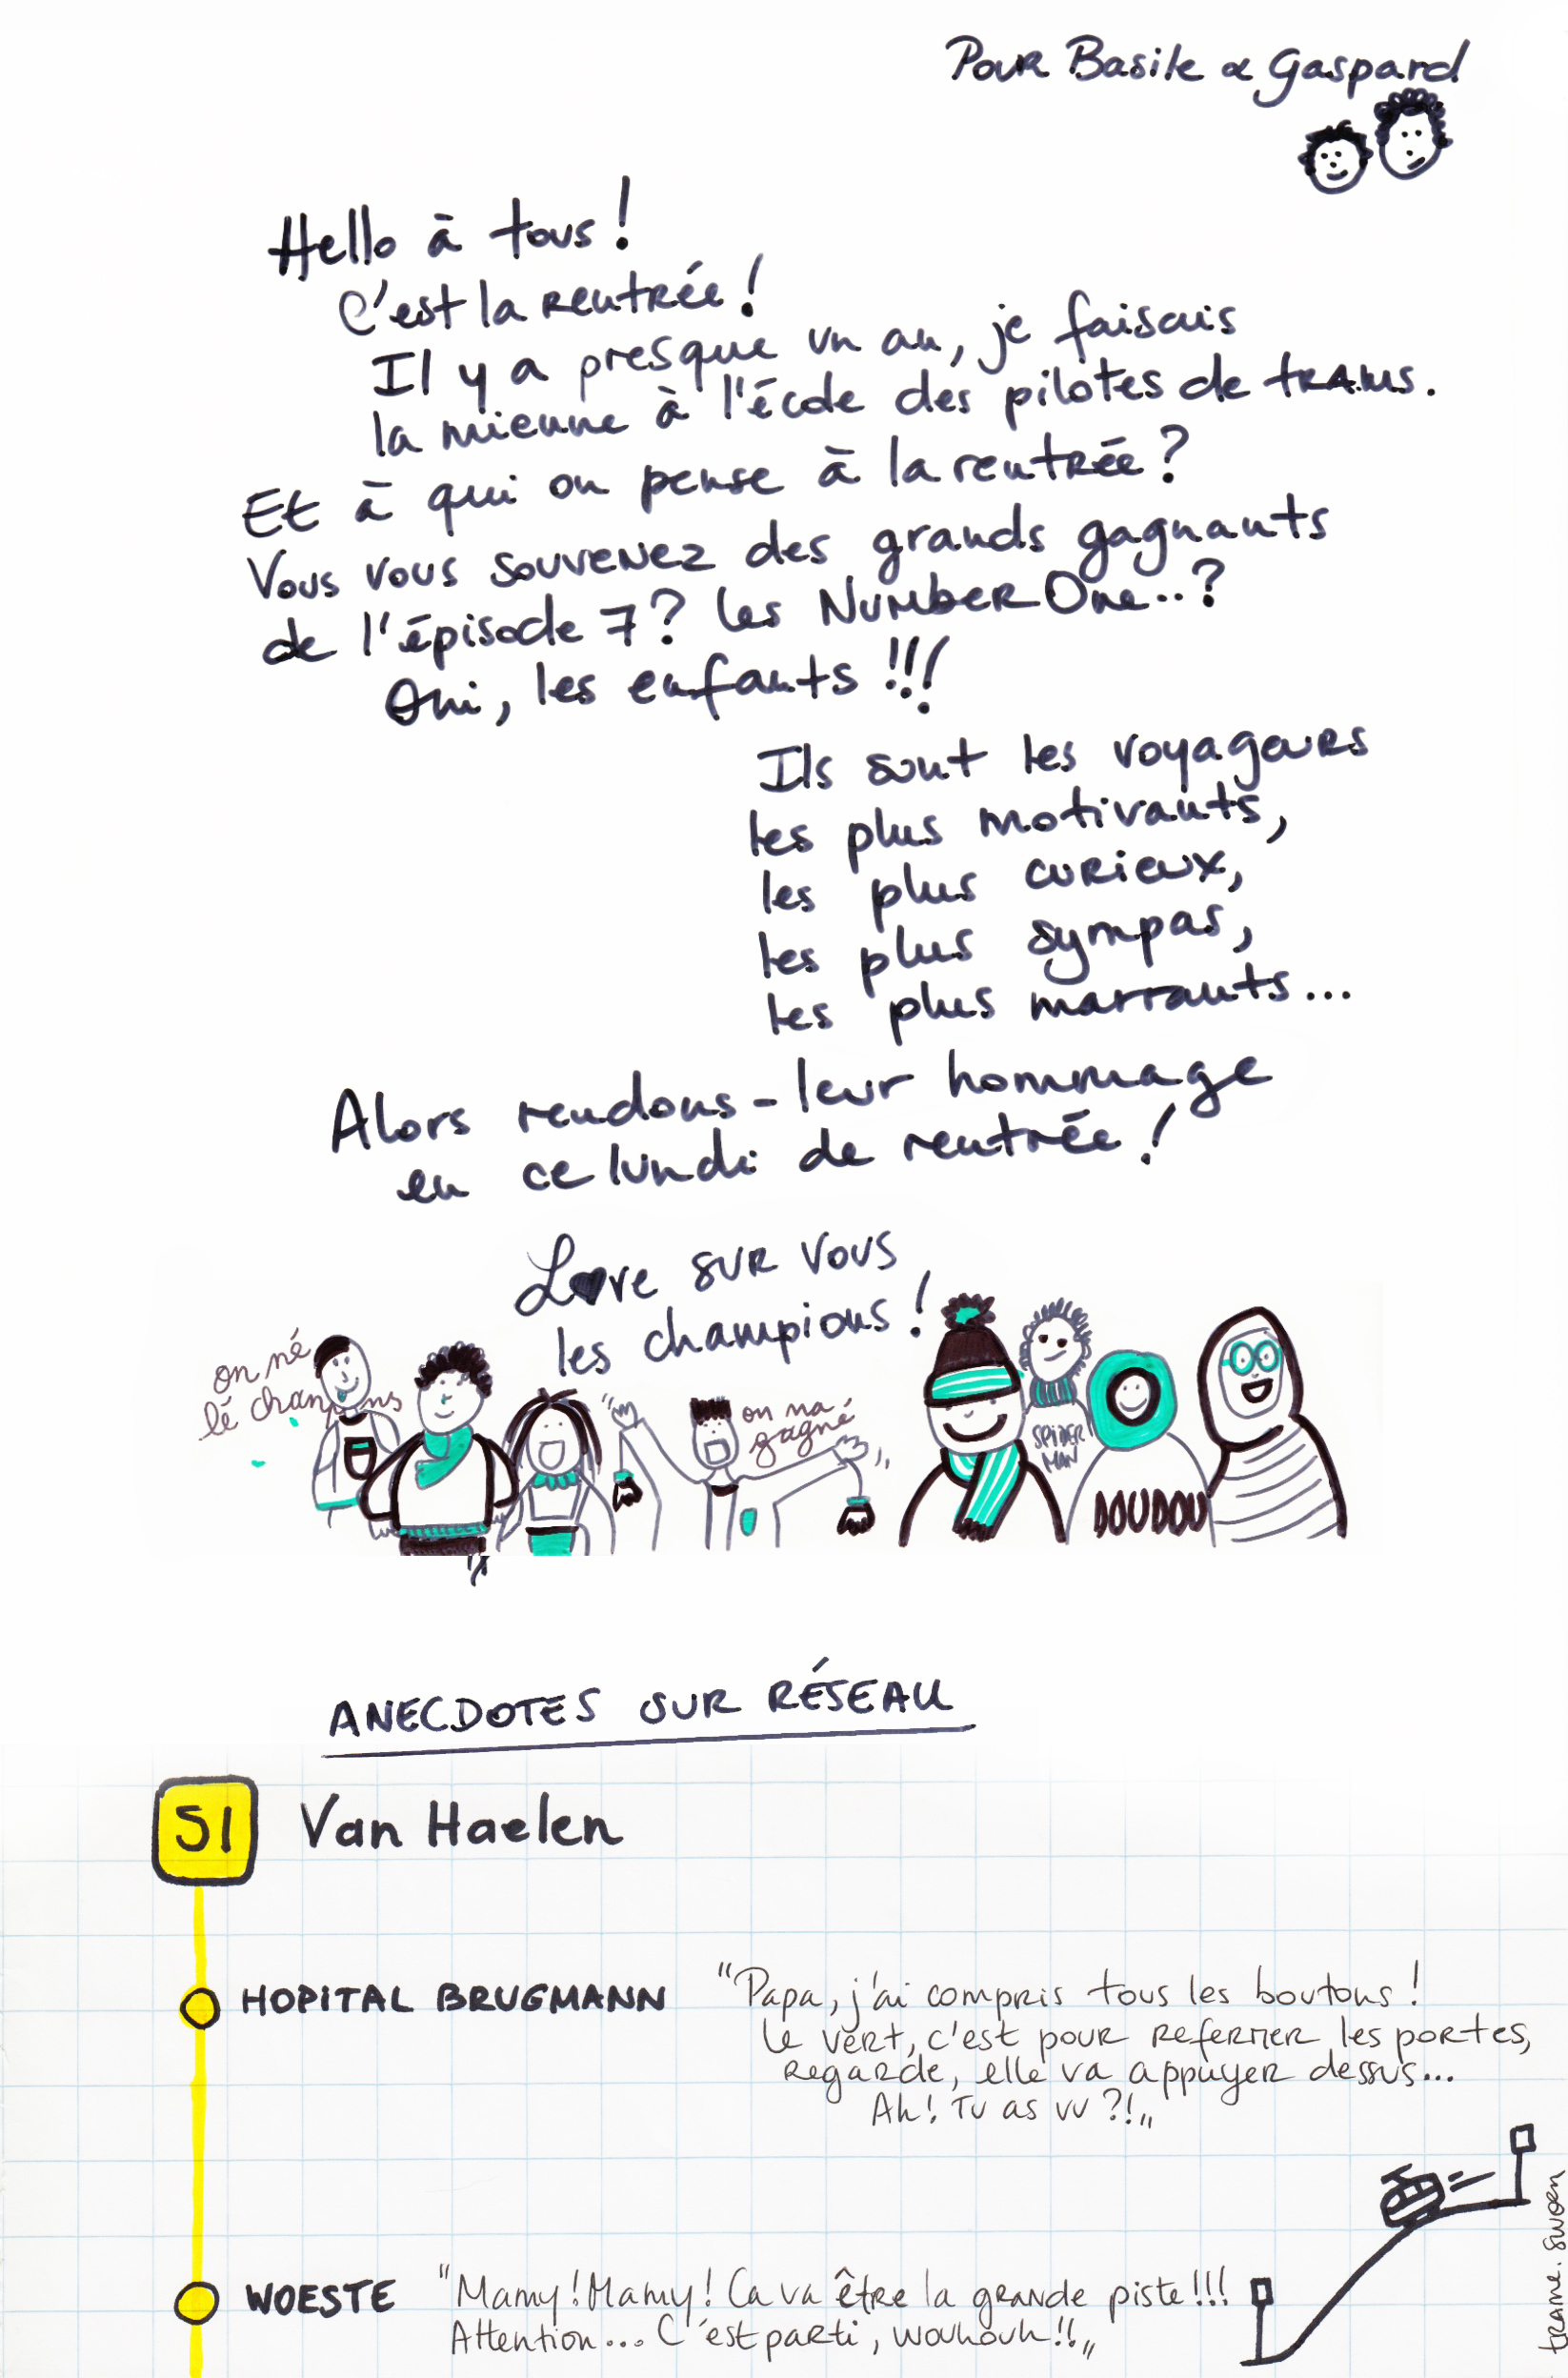 Pour Basile & Gaspard
Hello à tous !
C'est la rentrée !
Il y a presque un an, je faisais
la mienne à l'école des pilotes de trams.
Et à qui on pense à la rentrée ?
Vous vous souvenez des grands gagnants
de l'épisode 7 ? les Number One..?
Oui, les enfants !!!
Ils sont les voyageurs
les plus motivants,
les plus curieux,
les plus sympas,
les plus marrants...
Alors rendons-leur hommage
en ce lundi de rentrée !
Love sur vous
les champions !
on né
lé champions
on na
gagné
SPIDER
MAN
DOUDOU
ANECDOTES SUR RÉSEAU
51 Van Haelen
HOPITAL BRUGMANN
"Papa, j'ai compris tous les boutons !
Le vert, c'est pour refermer les portes,
regarde, elle va appuyer dessus...
Ah ! Tu as vu ?!"
WOESTE
"Mamy ! Mamy ! Ca va être la grande piste !!!
Attention... C'est parti, wouhouh !!"
trame.swoen